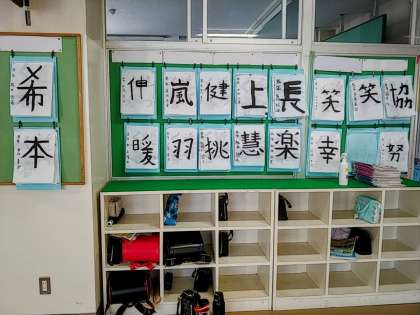 希
本
伸 嵐 健 上 長
暖 羽 挑 慧 楽
笑 笑 協
幸 努